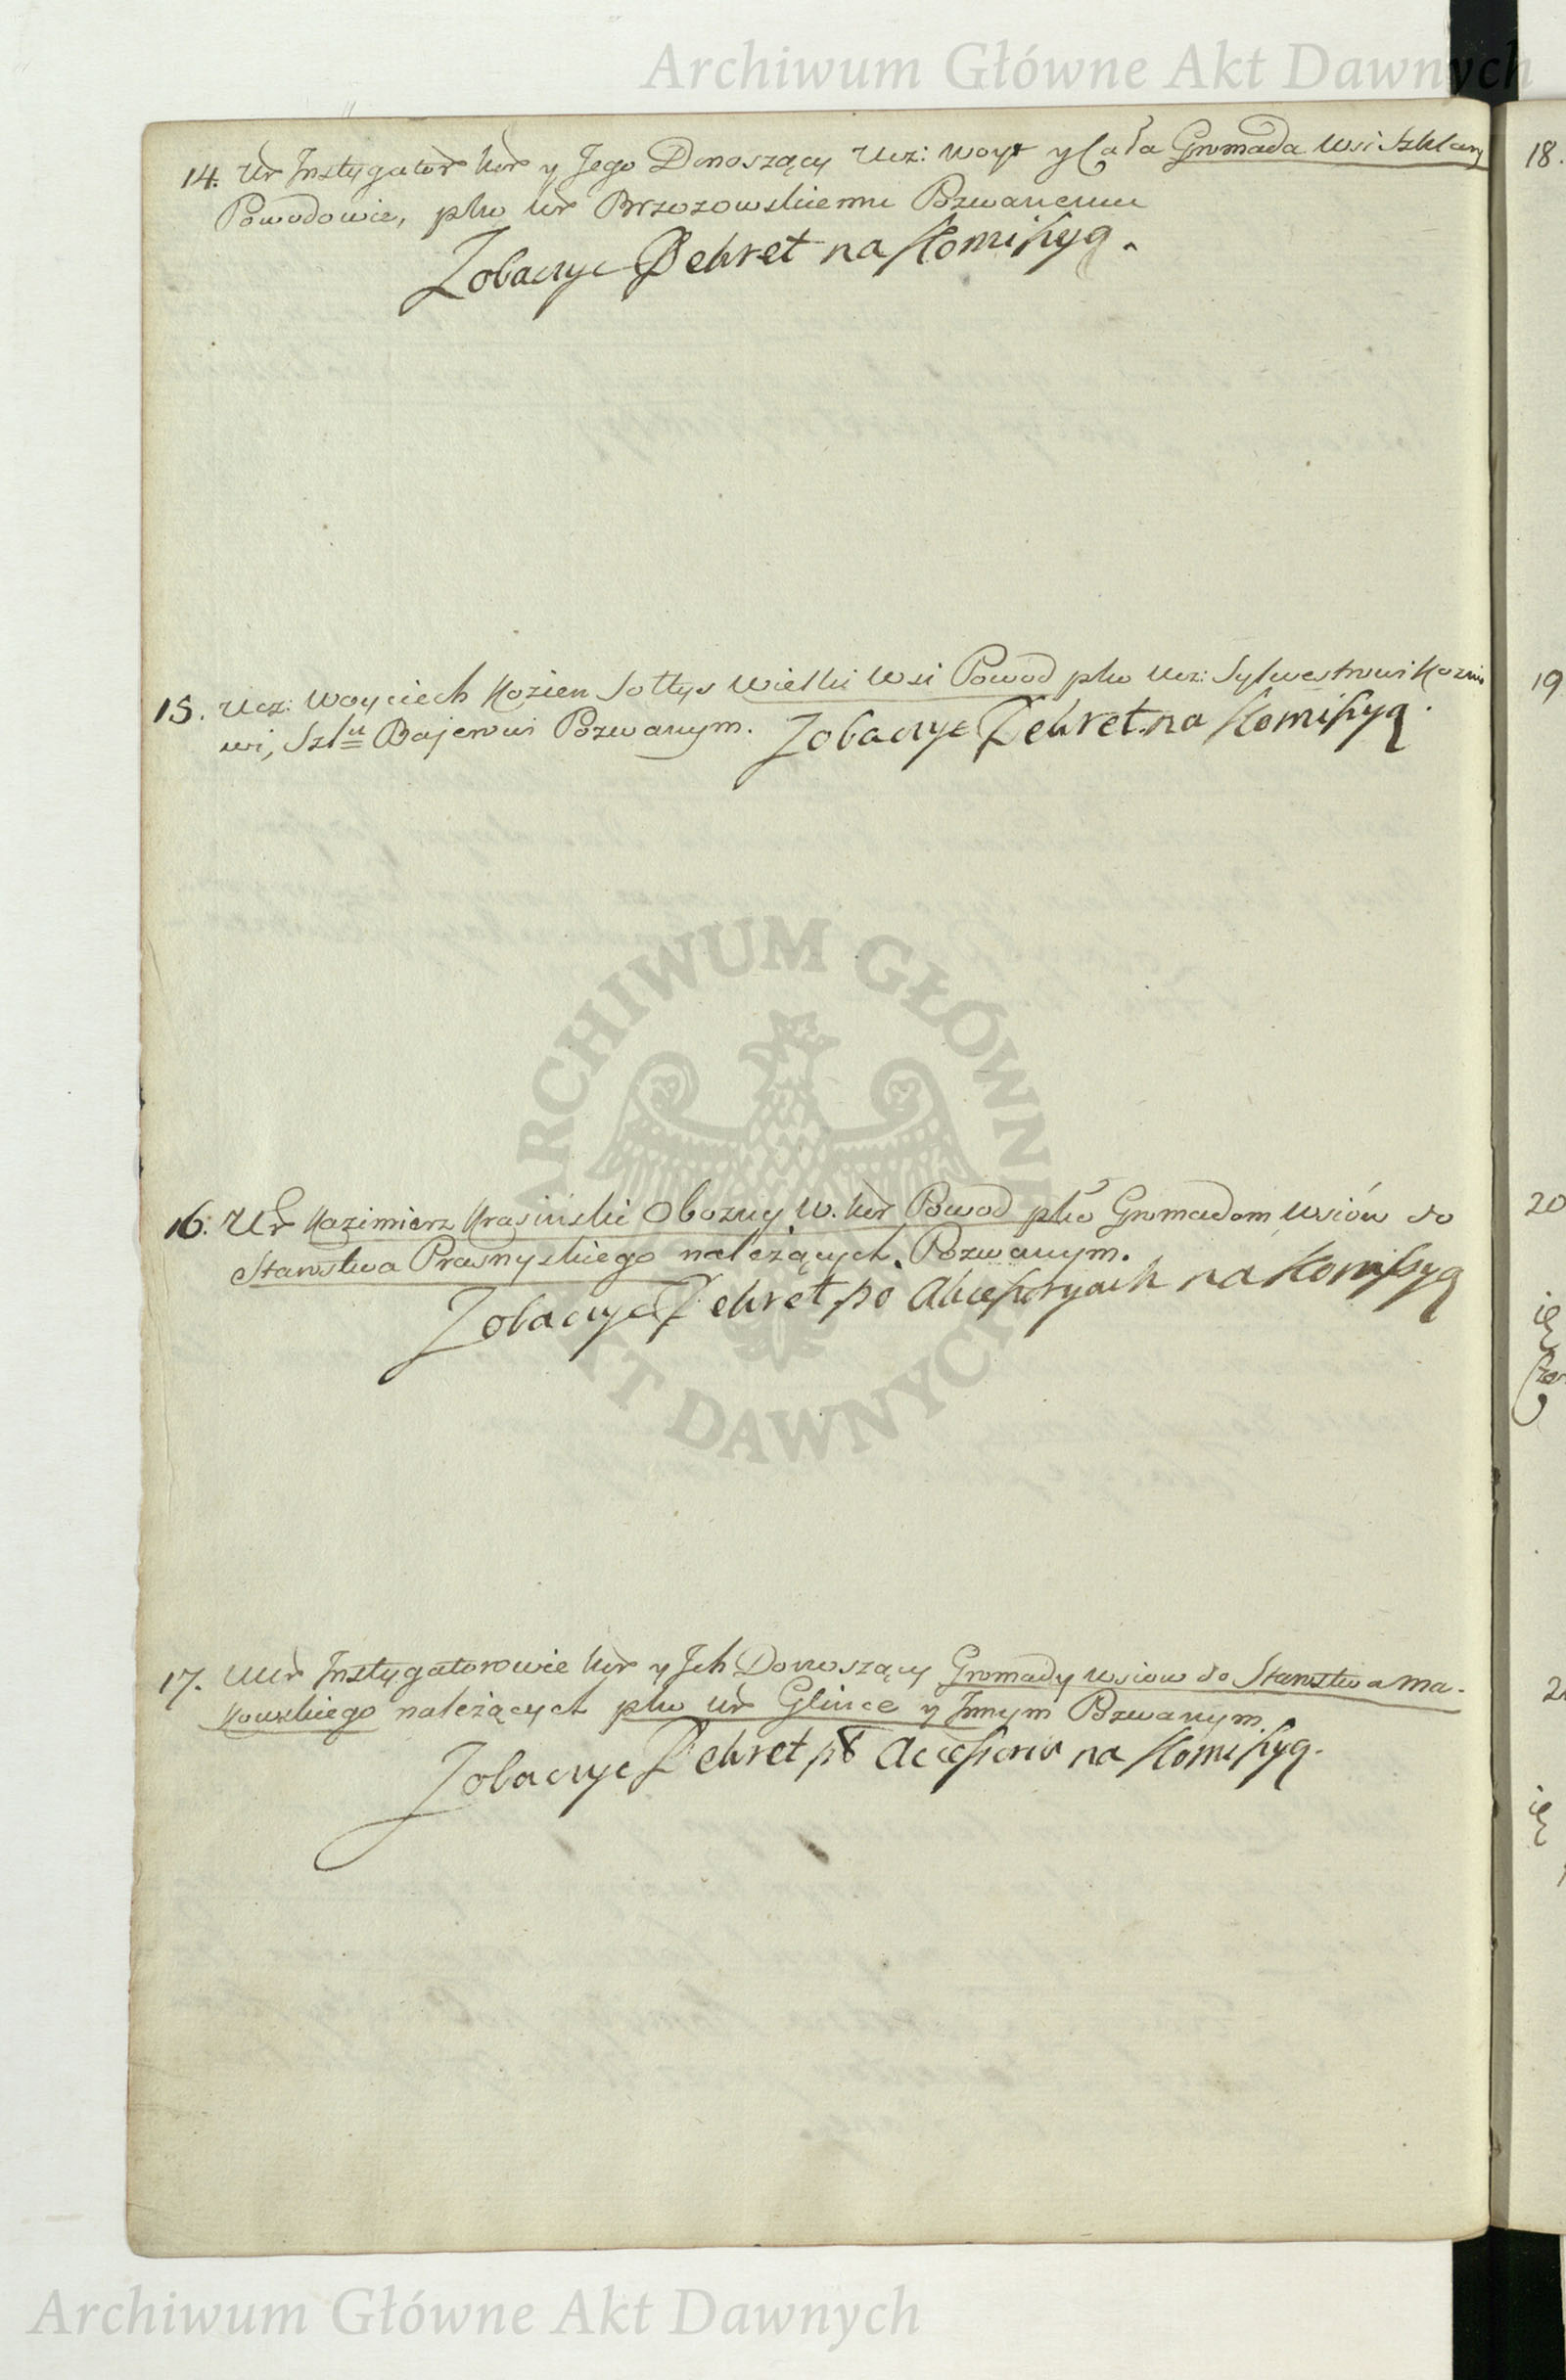 Archiwum Główne Akt Dawnych
14. Ur Instygator Kor y Jego Donoszący Ucz: Woyt y Cała Gromada Wsi Szklary
Powodowie, pko Ur Brzozowskiemu Pozwanemu
Zobaczyc Dekret na Komissyą.
15. Ucz: Woyciech Kozien Sołtys Wielki Wsi Powod pko Ucz: Sylwestrowi Koznio
wi, Szlu Bajerowi Pozwanym. Zobaczyc Dekret na Komissyą.
16. Ur Kazimierz Krasiński Obozny W. Kor Powod pko Gromadom Wsiów do
Starostwa Prasnyskiego należących Pozwanym.
Zobaczyc Dekret po Akcessoryach na Komissyą
17. UUr Instygatorowie Kor y Ich Donoszący Gromady Wsiow do Starostwa Ma-
kowskiego należących pko Ur Glince y Innym Pozwanym.
Zobaczyc Dekret po Accessoria na Komissyą.
18.
19
20
ARCHIWUM GŁÓWNE AKT DAWNYCH
Archiwum Główne Akt Dawnych